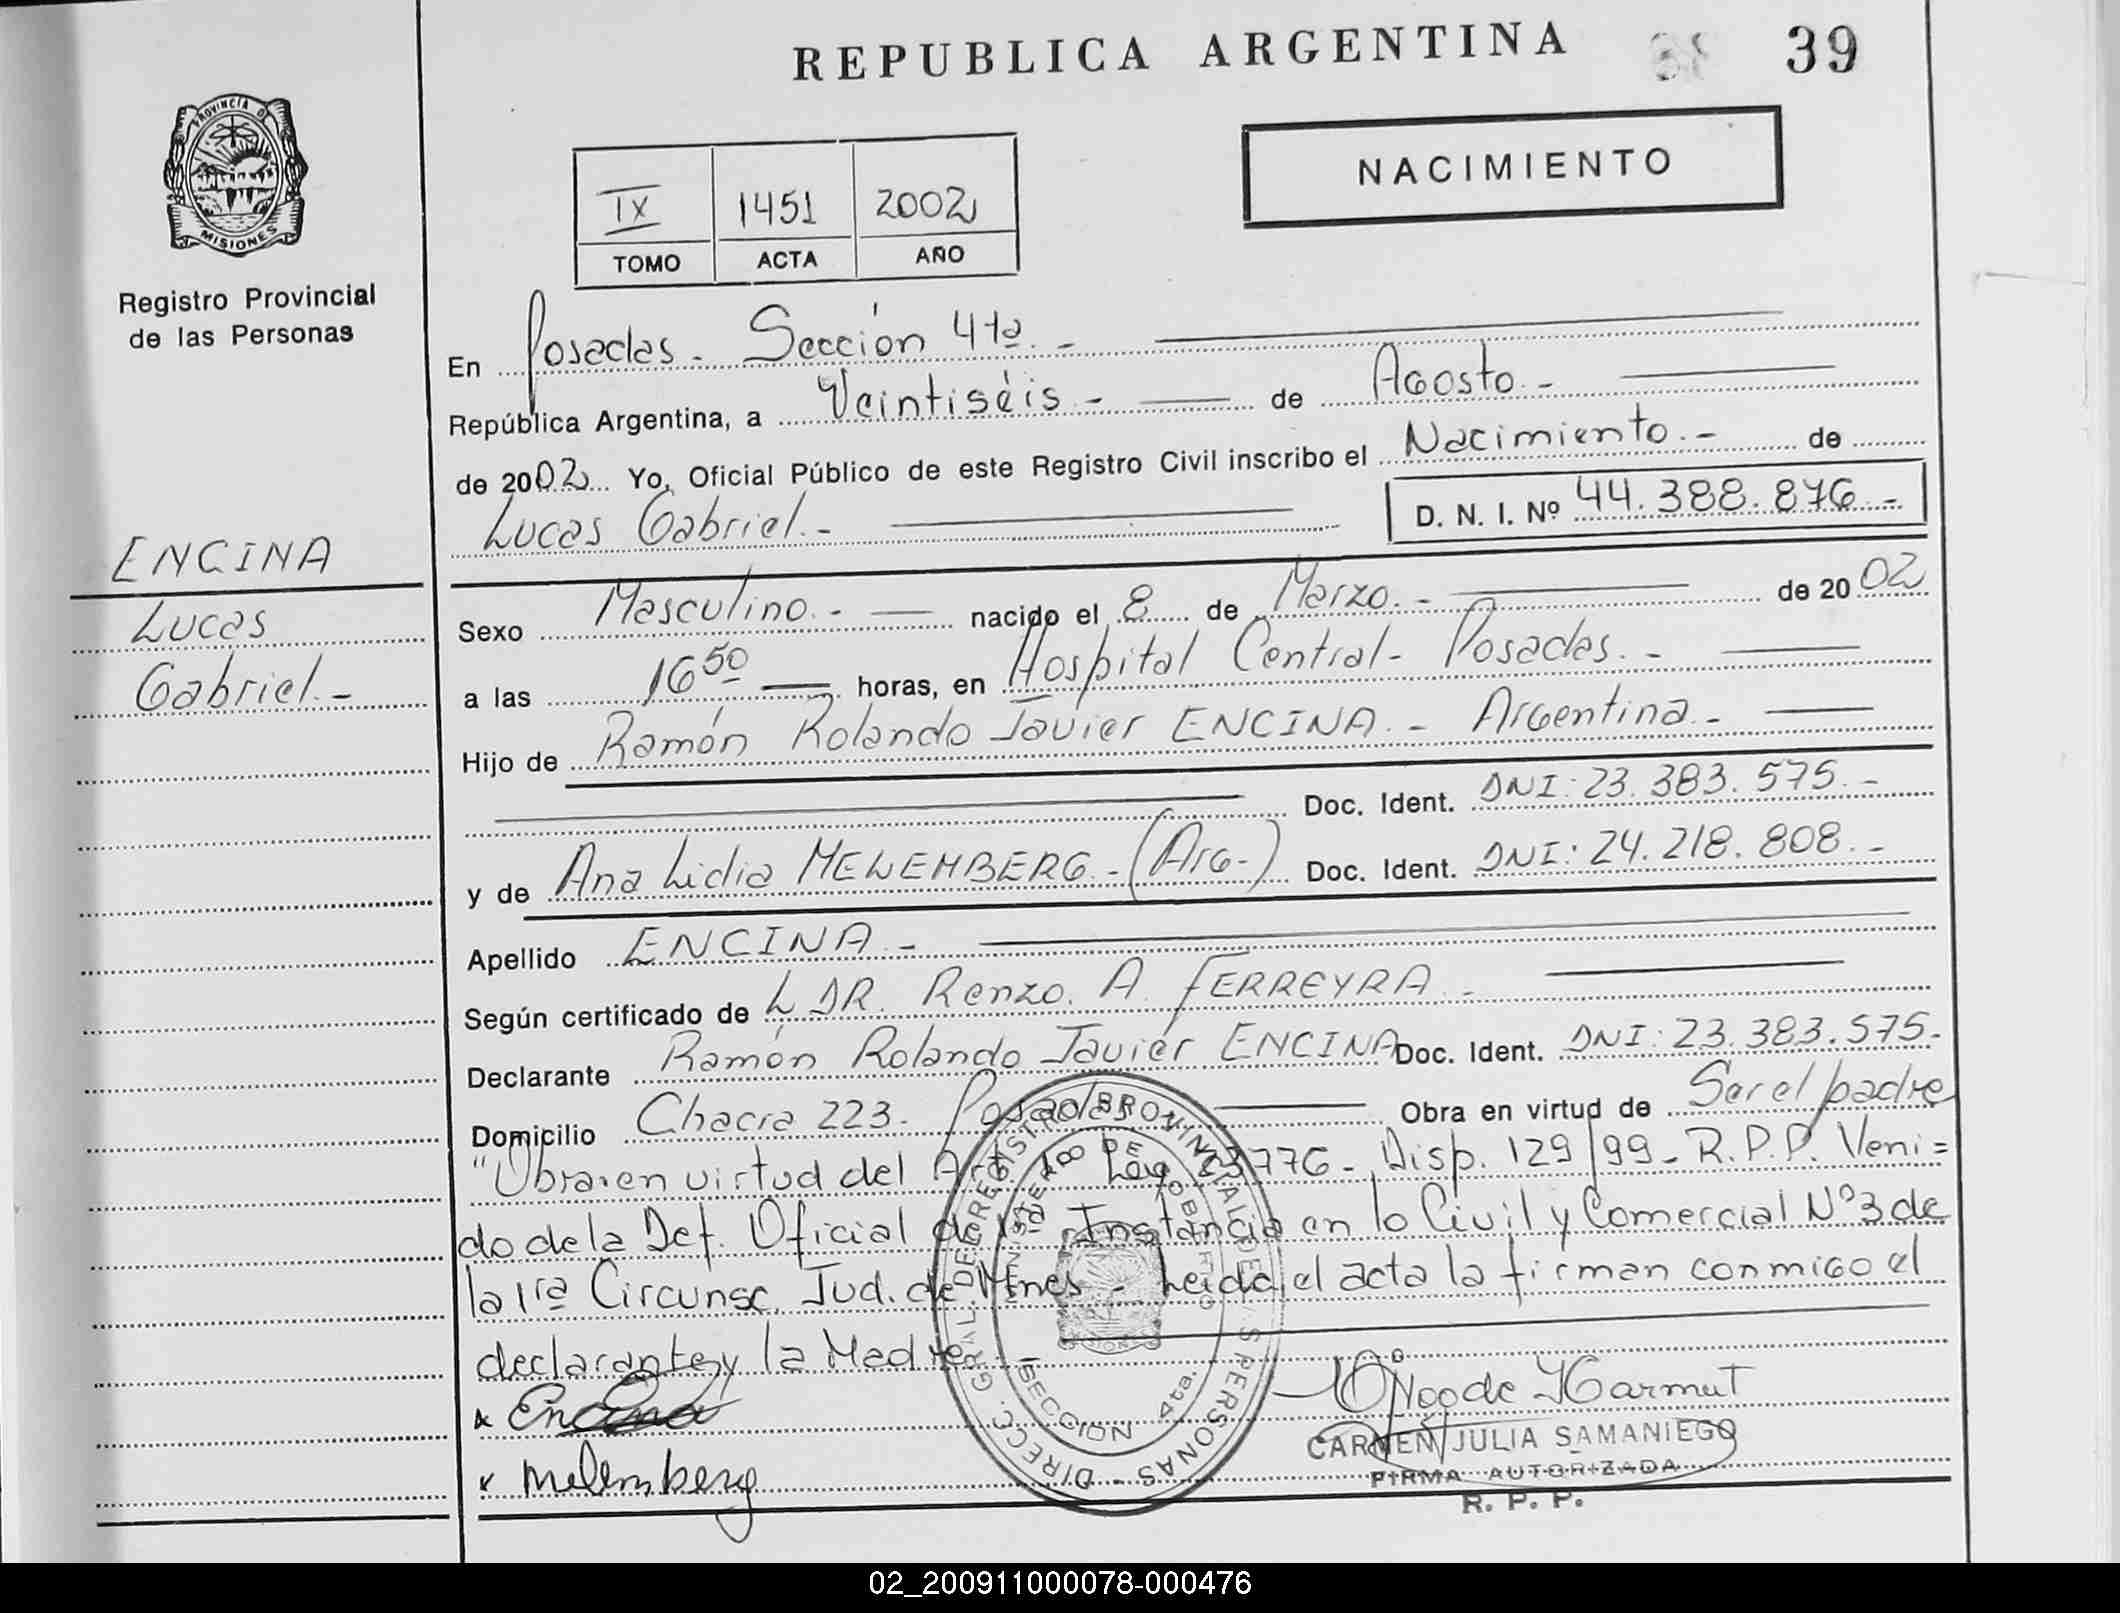 REPUBLICA ARGENTINA
39
PROVINCIA D
MISIONES
Registro Provincial
de las Personas
NACIMIENTO
IX 1451 2002
TOMO ACTA AÑO
En Posadas - Sección 4ta. -
República Argentina, a Veintiséis - de Agosto. -
de 2002 Yo, Oficial Público de este Registro Civil inscribo el Nacimiento. - de
Lucas Gabriel. - D. N. I. Nº 44.388.876. -
ENCINA
Lucas
Gabriel. -
Sexo Masculino. - nacido el 8 de Marzo. - de 2002
a las 16 50 horas, en Hospital Central - Posadas. -
Hijo de Ramón Rolando Javier ENCINA. - Argentina. -
Doc. Ident. DNI: 23.383.575. -
y de Ana Lidia MELEMBERG. - (Arg-) Doc. Ident. DNI: 24.218.808. -
Apellido ENCINA. -
Según certificado de L DR. Renzo. A. FERREYRA. -
Declarante Ramón Rolando Javier ENCINA Doc. Ident. DNI: 23.383.575.-
Domicilio Chacra 223. Posadas Obra en virtud de Ser el padre
"Obra en virtud del Ley 23776 - Disp. 129/99 - R.P.P. Veni=
do de la Def. Oficial de 1ra Instancia en lo Civil y Comercial Nº 3 de
la 1ra Circunsc. Jud. de Mnes - Leida el acta la firman conmigo el
declarante y la Madre. -
x Encina
x Melemberg
DIRECC. GRAL. DE REGISTRO PROVINCIAL DE LAS PERSONAS
MINISTERIO DE GOBIERNO
SECCION 4ta.
CARMEN JULIA SAMANIEGO
FIRMA AUTORIZADA
R. P. P.
02_200911000078-000476